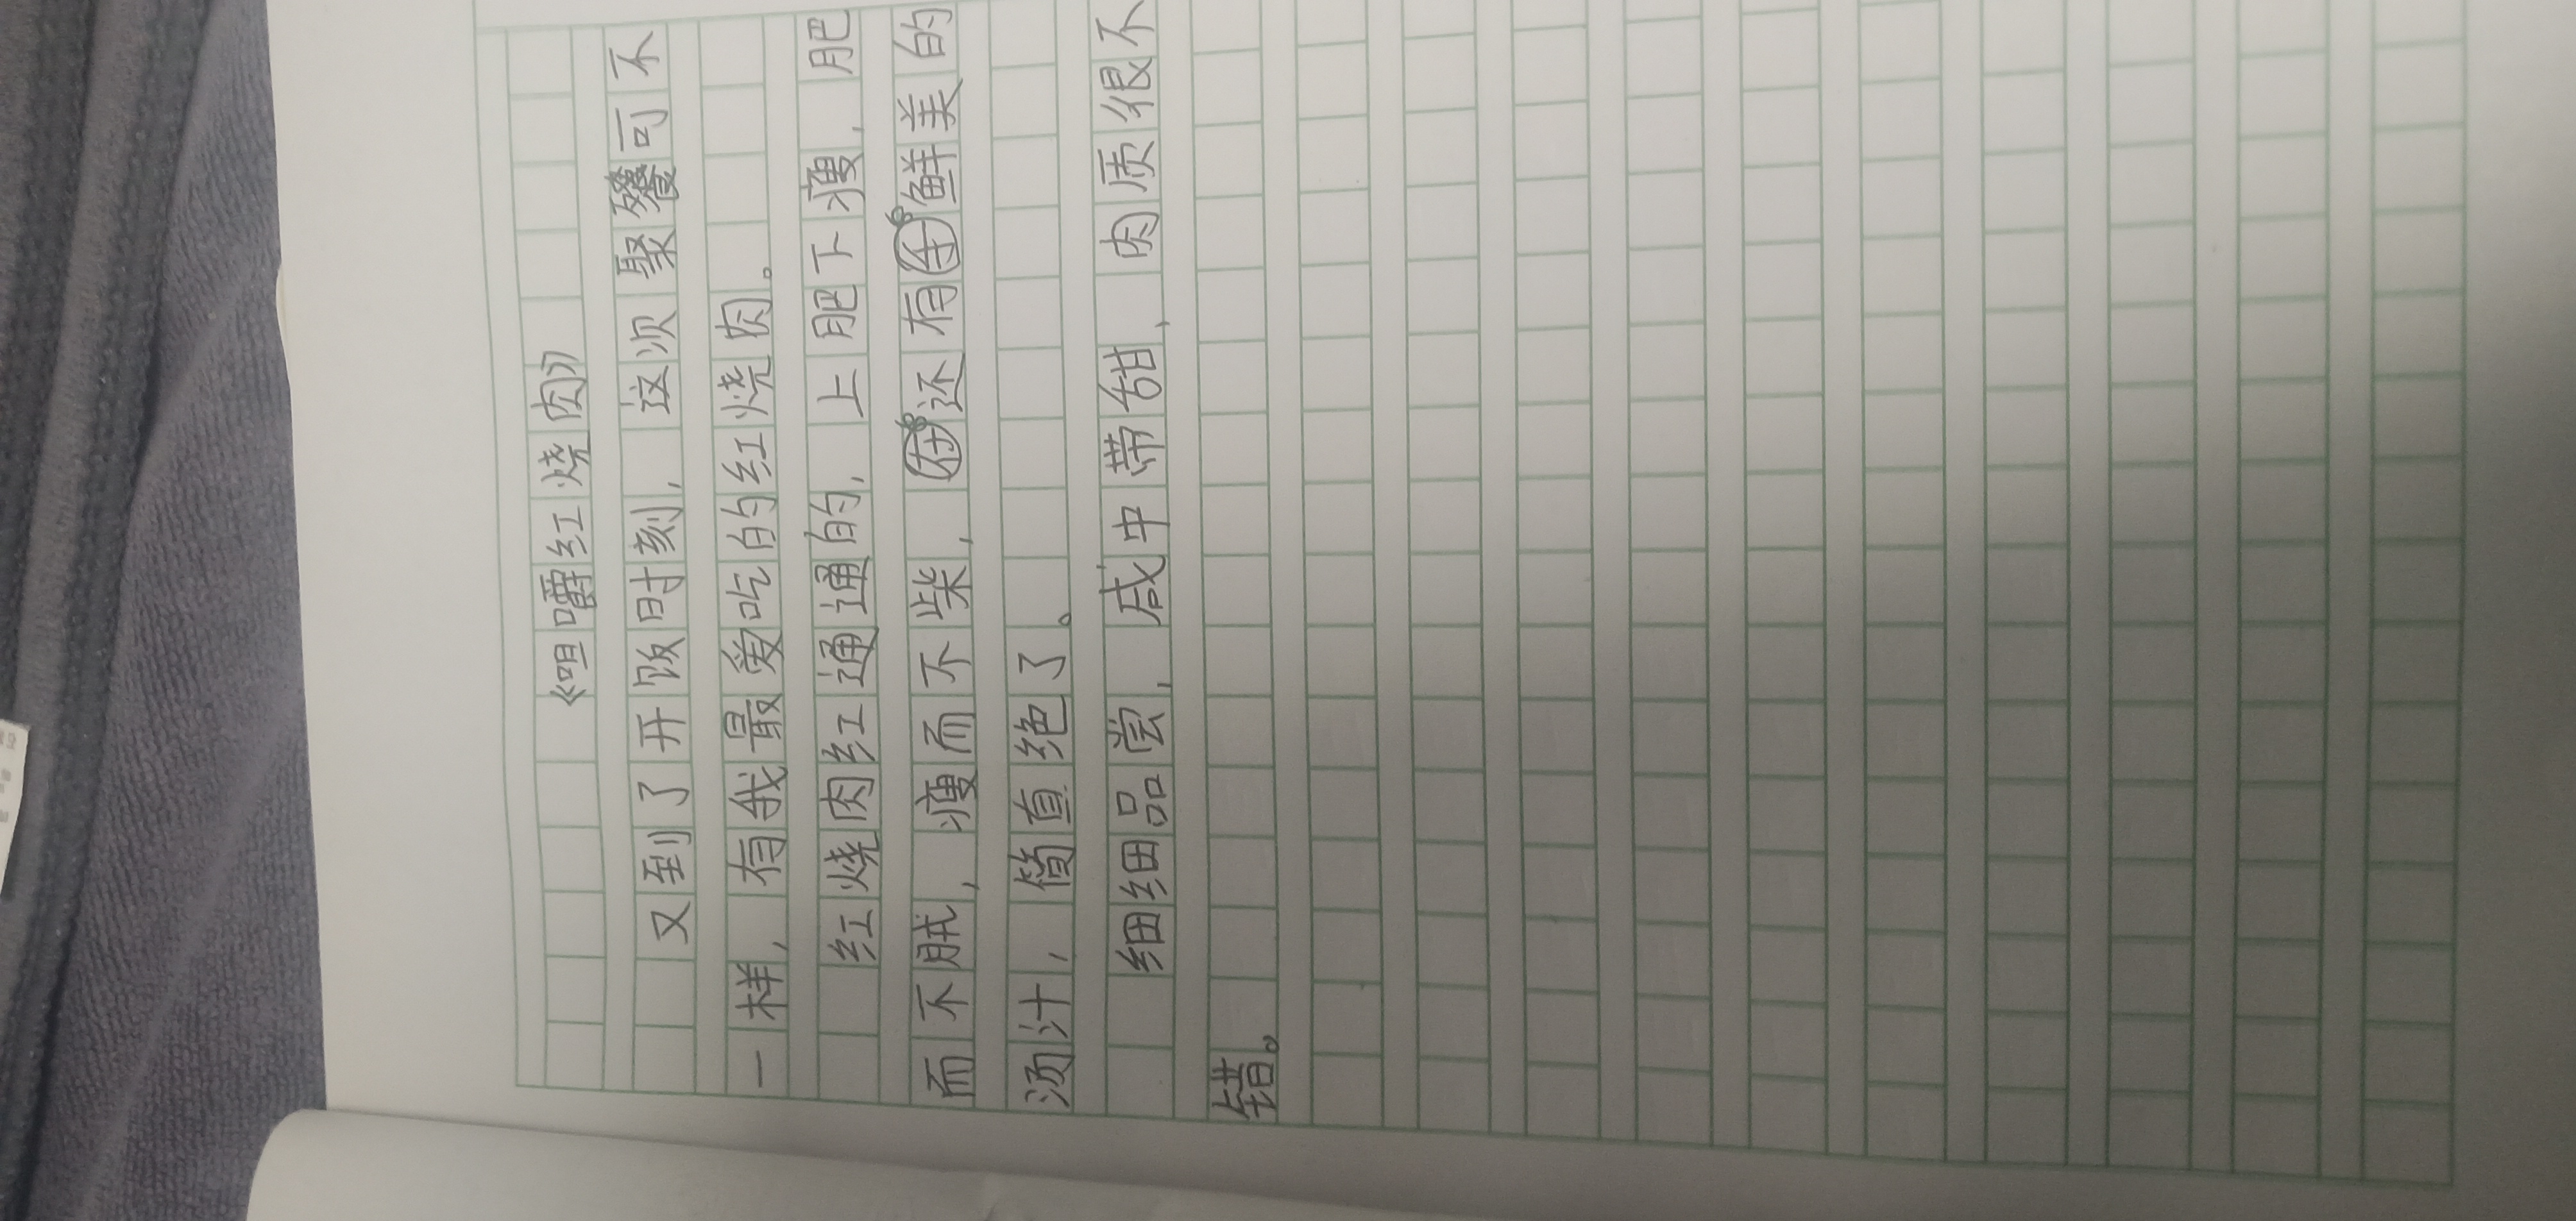 《咀嚼红烧肉》
又到了开饭时刻，这次聚餐可不
一样，有我最爱吃的红烧肉。
红烧肉红通通的，上肥下瘦，肥
而不腻，瘦而不柴，还有鲜美的
汤汁，简直绝了。
细细品尝，咸中带甜，肉质很不
错。